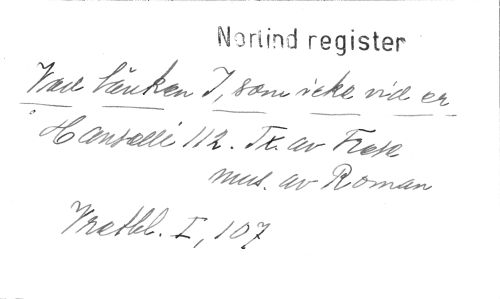 Norlind register
Vad tänken I, som icke vid er
Hanselli 112. Tx. av Frese
mus. av Roman
Vretbl. I, 107